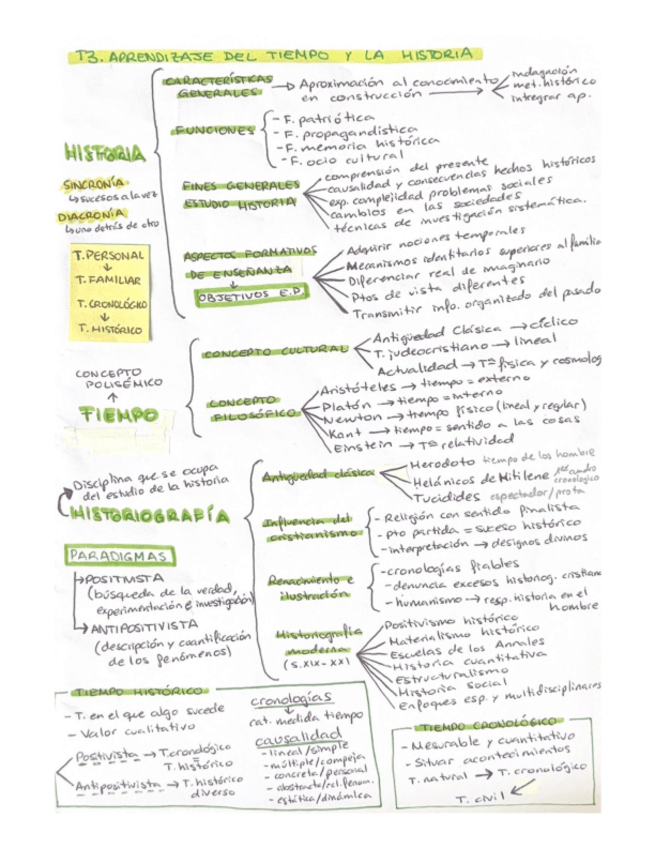 T3. APRENDIZAJE DEL TIEMPO Y LA HISTORIA
HISTORIA
SINCRONÍA
↳ sucesos a la vez
DIACRONÍA
↳ uno detrás de otro
T. PERSONAL
↓
T. FAMILIAR
↓
T. CRONOLÓGICO
↓
T. HISTÓRICO
CARACTERÍSTICAS GENERALES → Aproximación al conocimiento
en construcción →
indagación
met. histórico
intregrar ap.
FUNCIONES
- F. patriótica
- F. propagandística
- F. memoria histórica
- F. ocio cultural
FINES GENERALES
ESTUDIO HISTORIA
comprensión del presente
causalidad y consecuencias hechos históricos
exp. complejidad problemas sociales
cambios en las sociedades
técnicas de investigación sistemática.
ASPECTOS FORMATIVOS
DE ENSEÑANZA
↓
OBJETIVOS E.P.
Adquirir nociones temporales
Mecanismos identitarios superiores al familia
Diferenciar real de imaginario
Ptos de vista diferentes
Transmitir info. organizada del pasado
CONCEPTO
POLISÉMICO
↑
TIEMPO
CONCEPTO CULTURAL
Antigüedad Clásica → cíclico
T. judeocristiano → lineal
Actualidad → Tª física y cosmolog
CONCEPTO
FILOSÓFICO
Aristóteles → tiempo = externo
Platón → tiempo = interno
Newton → tiempo físico (lineal y regular)
Kant → tiempo = sentido a las cosas
Einstein → Tª relatividad
Disciplina que se ocupa
del estudio de la historia
HISTORIOGRAFÍA
PARADIGMAS
↳ POSITIVISTA
(búsqueda de la verdad,
experimentación e investigación)
↳ ANTIPOSITIVISTA
(descripción y cuantificación
de los fenómenos)
Antigüedad clásica
Herodoto tiempo de los hombre
Helánicos de Mitilene 1er cuadro cronológico
Tucídides espectador/prota
Influencia del
cristianismo
- Religión con sentido finalista
- pto partida = suceso histórico
- interpretación → designos divinos
Renacimiento e
ilustración
- cronologías fiables
- denuncia excesos historiog. cristiana
- humanismo → resp. historia en el
hombre
Historiografía
moderna
(S.XIX - XX)
Positivismo histórico
Materialismo histórico
Escuelas de los Annales
Historia cuantitativa
Estructuralismo
Historia Social
Enfoques esp. y multidisciplinares
TIEMPO HISTÓRICO
- T. en el que algo sucede
- Valor cualitativo
Positivista → T. cronológico
=
T. histórico
Antipositivista → T. histórico
diverso
cronologías
↓
rat. medida tiempo
causalidad
- lineal/simple
- múltiple/compeja
- concreta/personal
- abstracta/rel. fenom.
- estática/dinámica
TIEMPO CRONOLÓGICO
- Mesurable y cuantitativo
- Situar acontecimientos
T. natural → T. cronológico
T. civil ↙